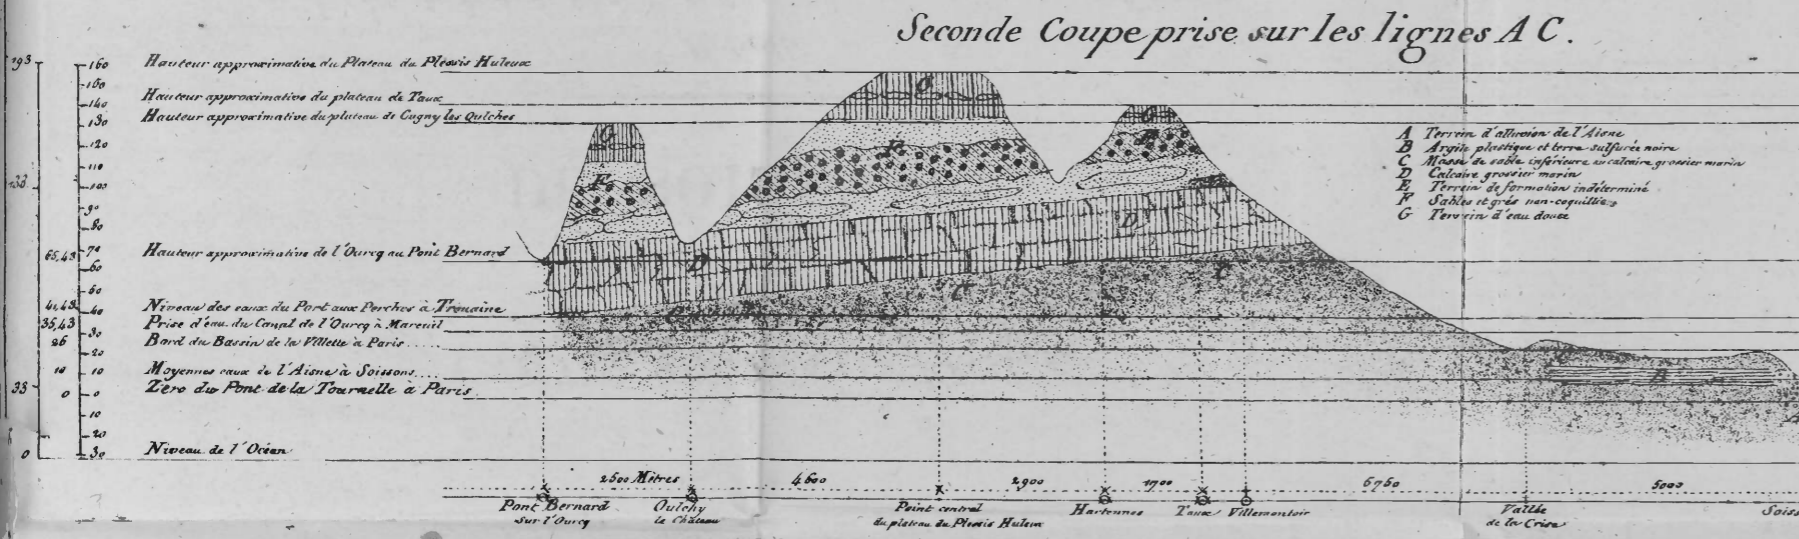 Seconde Coupe prise sur les lignes A C.
193
133
33
0
65,43
41,43
35,43
26
10
0
160
150
140
130
120
110
100
90
80
70
60
50
40
30
20
10
0
10
20
30
Hauteur approximative du Plateau du Plessis Huleux
Hauteur approximative du plateau de Taux
Hauteur approximative du plateau de Cugny les Oulches
Hauteur approximative de l'Ourcq au Pont Bernard
Niveau des eaux du Port aux Perches à Trouaine
Prise d'eau du Canal de l'Ourcq à Mareuil
Bord du Bassin de la Villette à Paris
Moyennes eaux de l'Aisne à Soissons
Zéro du Pont de la Tournelle à Paris
Niveau de l'Océan
G
F
D
G
E
C
G
D
C
A
A Terrein d'alluvion de l'Aisne
B Argile plastique et terre sulfurée noire
C Masse de sable inférieure au calcaire grossier marin
D Calcaire grossier marin
E Terrein de formation indéterminé
F Sables et grès non-coquilliers
G Terrein d'eau douce
2500 Mètres
4600
2900
1700
6750
5000
Pont Bernard
sur l'Ourcq
Oulchy
le Château
Point central
du plateau du Plessis Huleux
Hartennes
Taux
Villemontoir
Vallée
de la Crise
Soiss